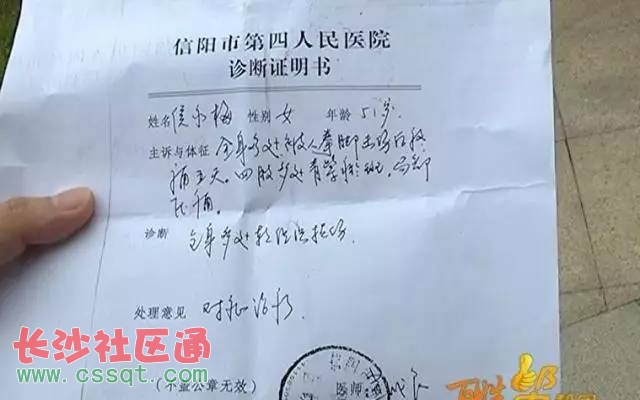 信阳市第四人民医院
诊断证明书
姓名 侯小梅 性别 女 年龄 51岁
主诉与体征 全身多处被人拳脚击伤后疼
痛五天。四肢多处青紫瘀斑,局部
压痛。
诊断 全身多处软组织挫伤。
处理意见 对症治疗
长沙社区通
www.cssqt.com
(不盖公章无效) 医师
百姓帮